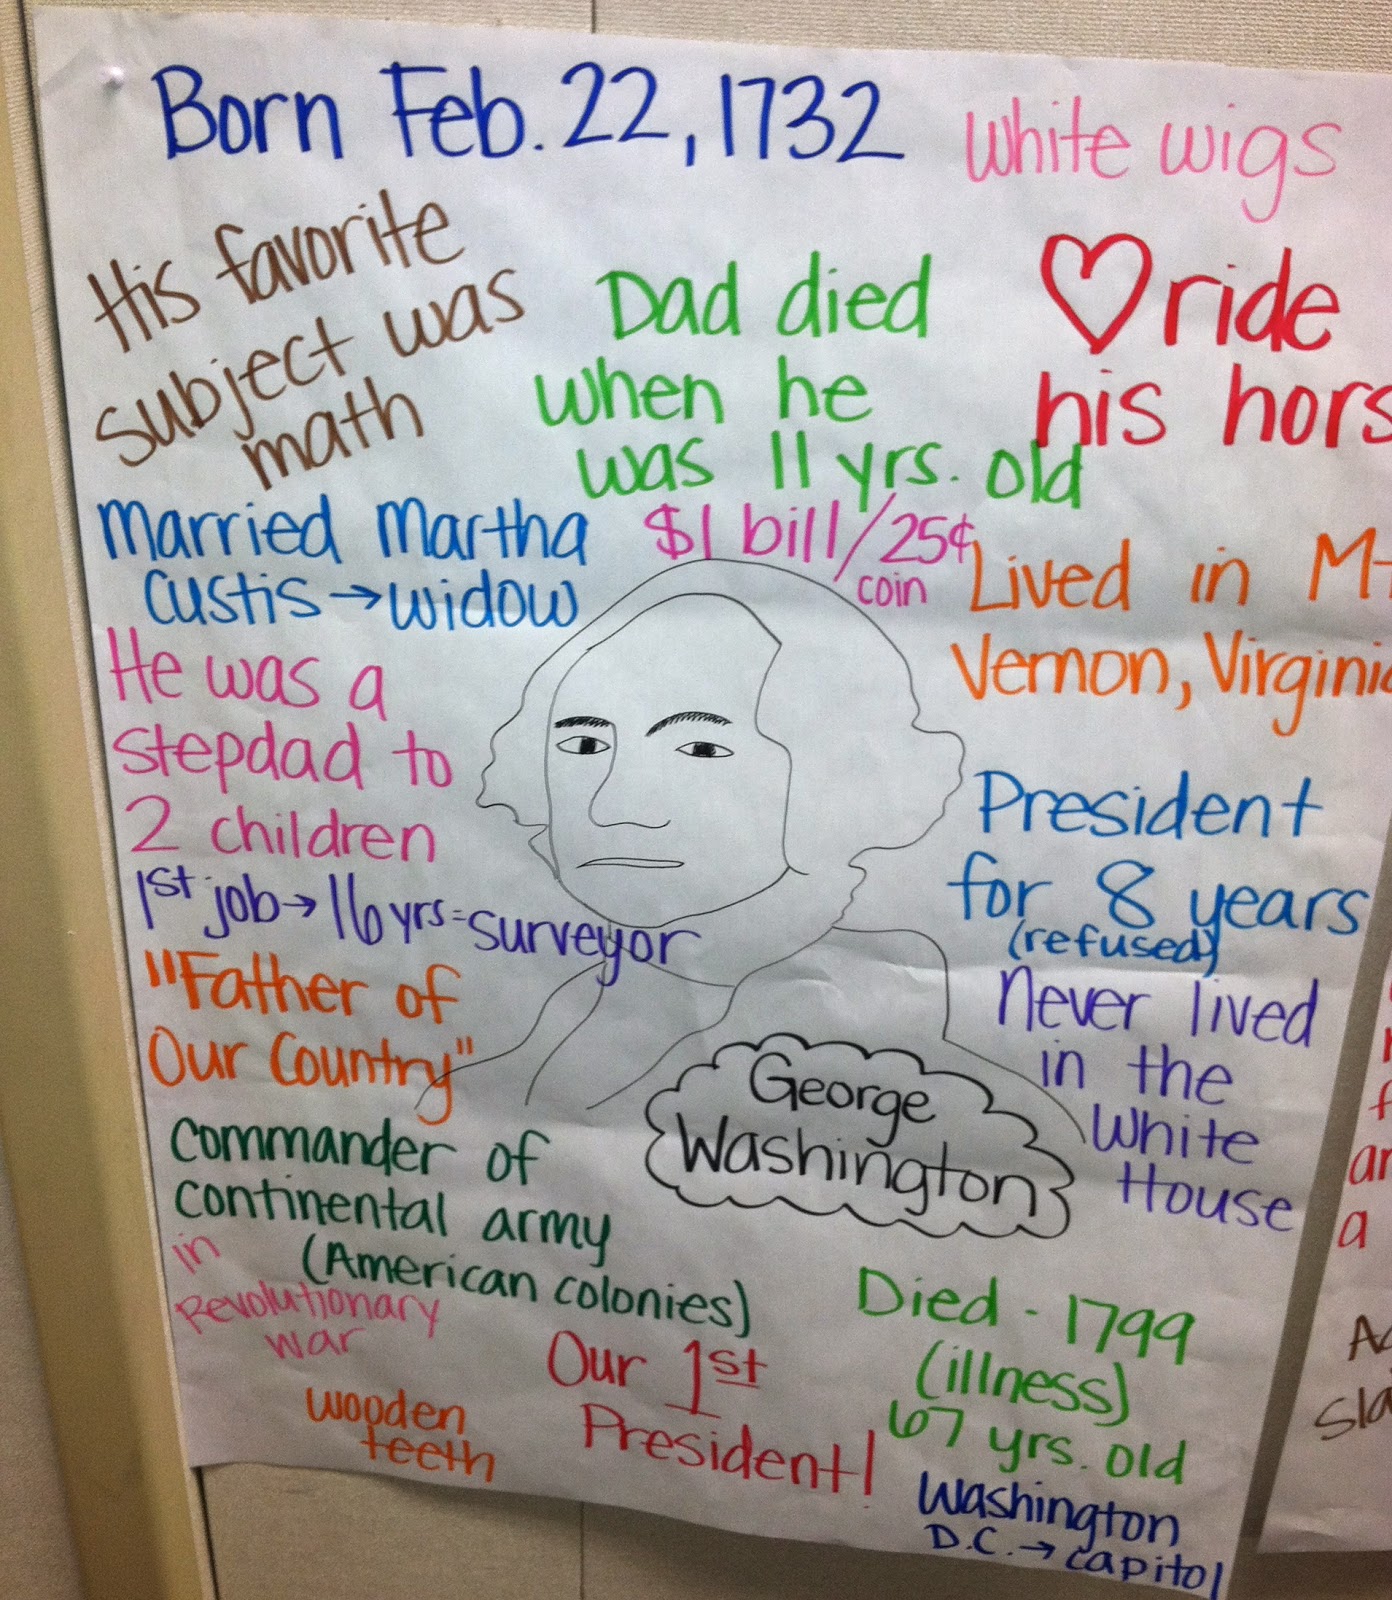 Born Feb. 22, 1732
White wigs
His favorite
subject was
math
Dad died
when he
was 11 yrs. old
♡ ride
his hors
Married Martha
Custis → widow
$1 bill/25¢
coin
Lived in Mt
Vernon, Virginia
He was a
stepdad to
2 children
1st job → 16 yrs = surveyor
President
for 8 years
(refused)
"Father of
Our Country"
Never lived
in the
White
House
George
Washington
Commander of
continental army
(American colonies)
in
Revolutionary
war
Died - 1799
(illness)
67 yrs. old
Our 1st
President!
wooden
teeth
Washington
D.C. → capitol
a